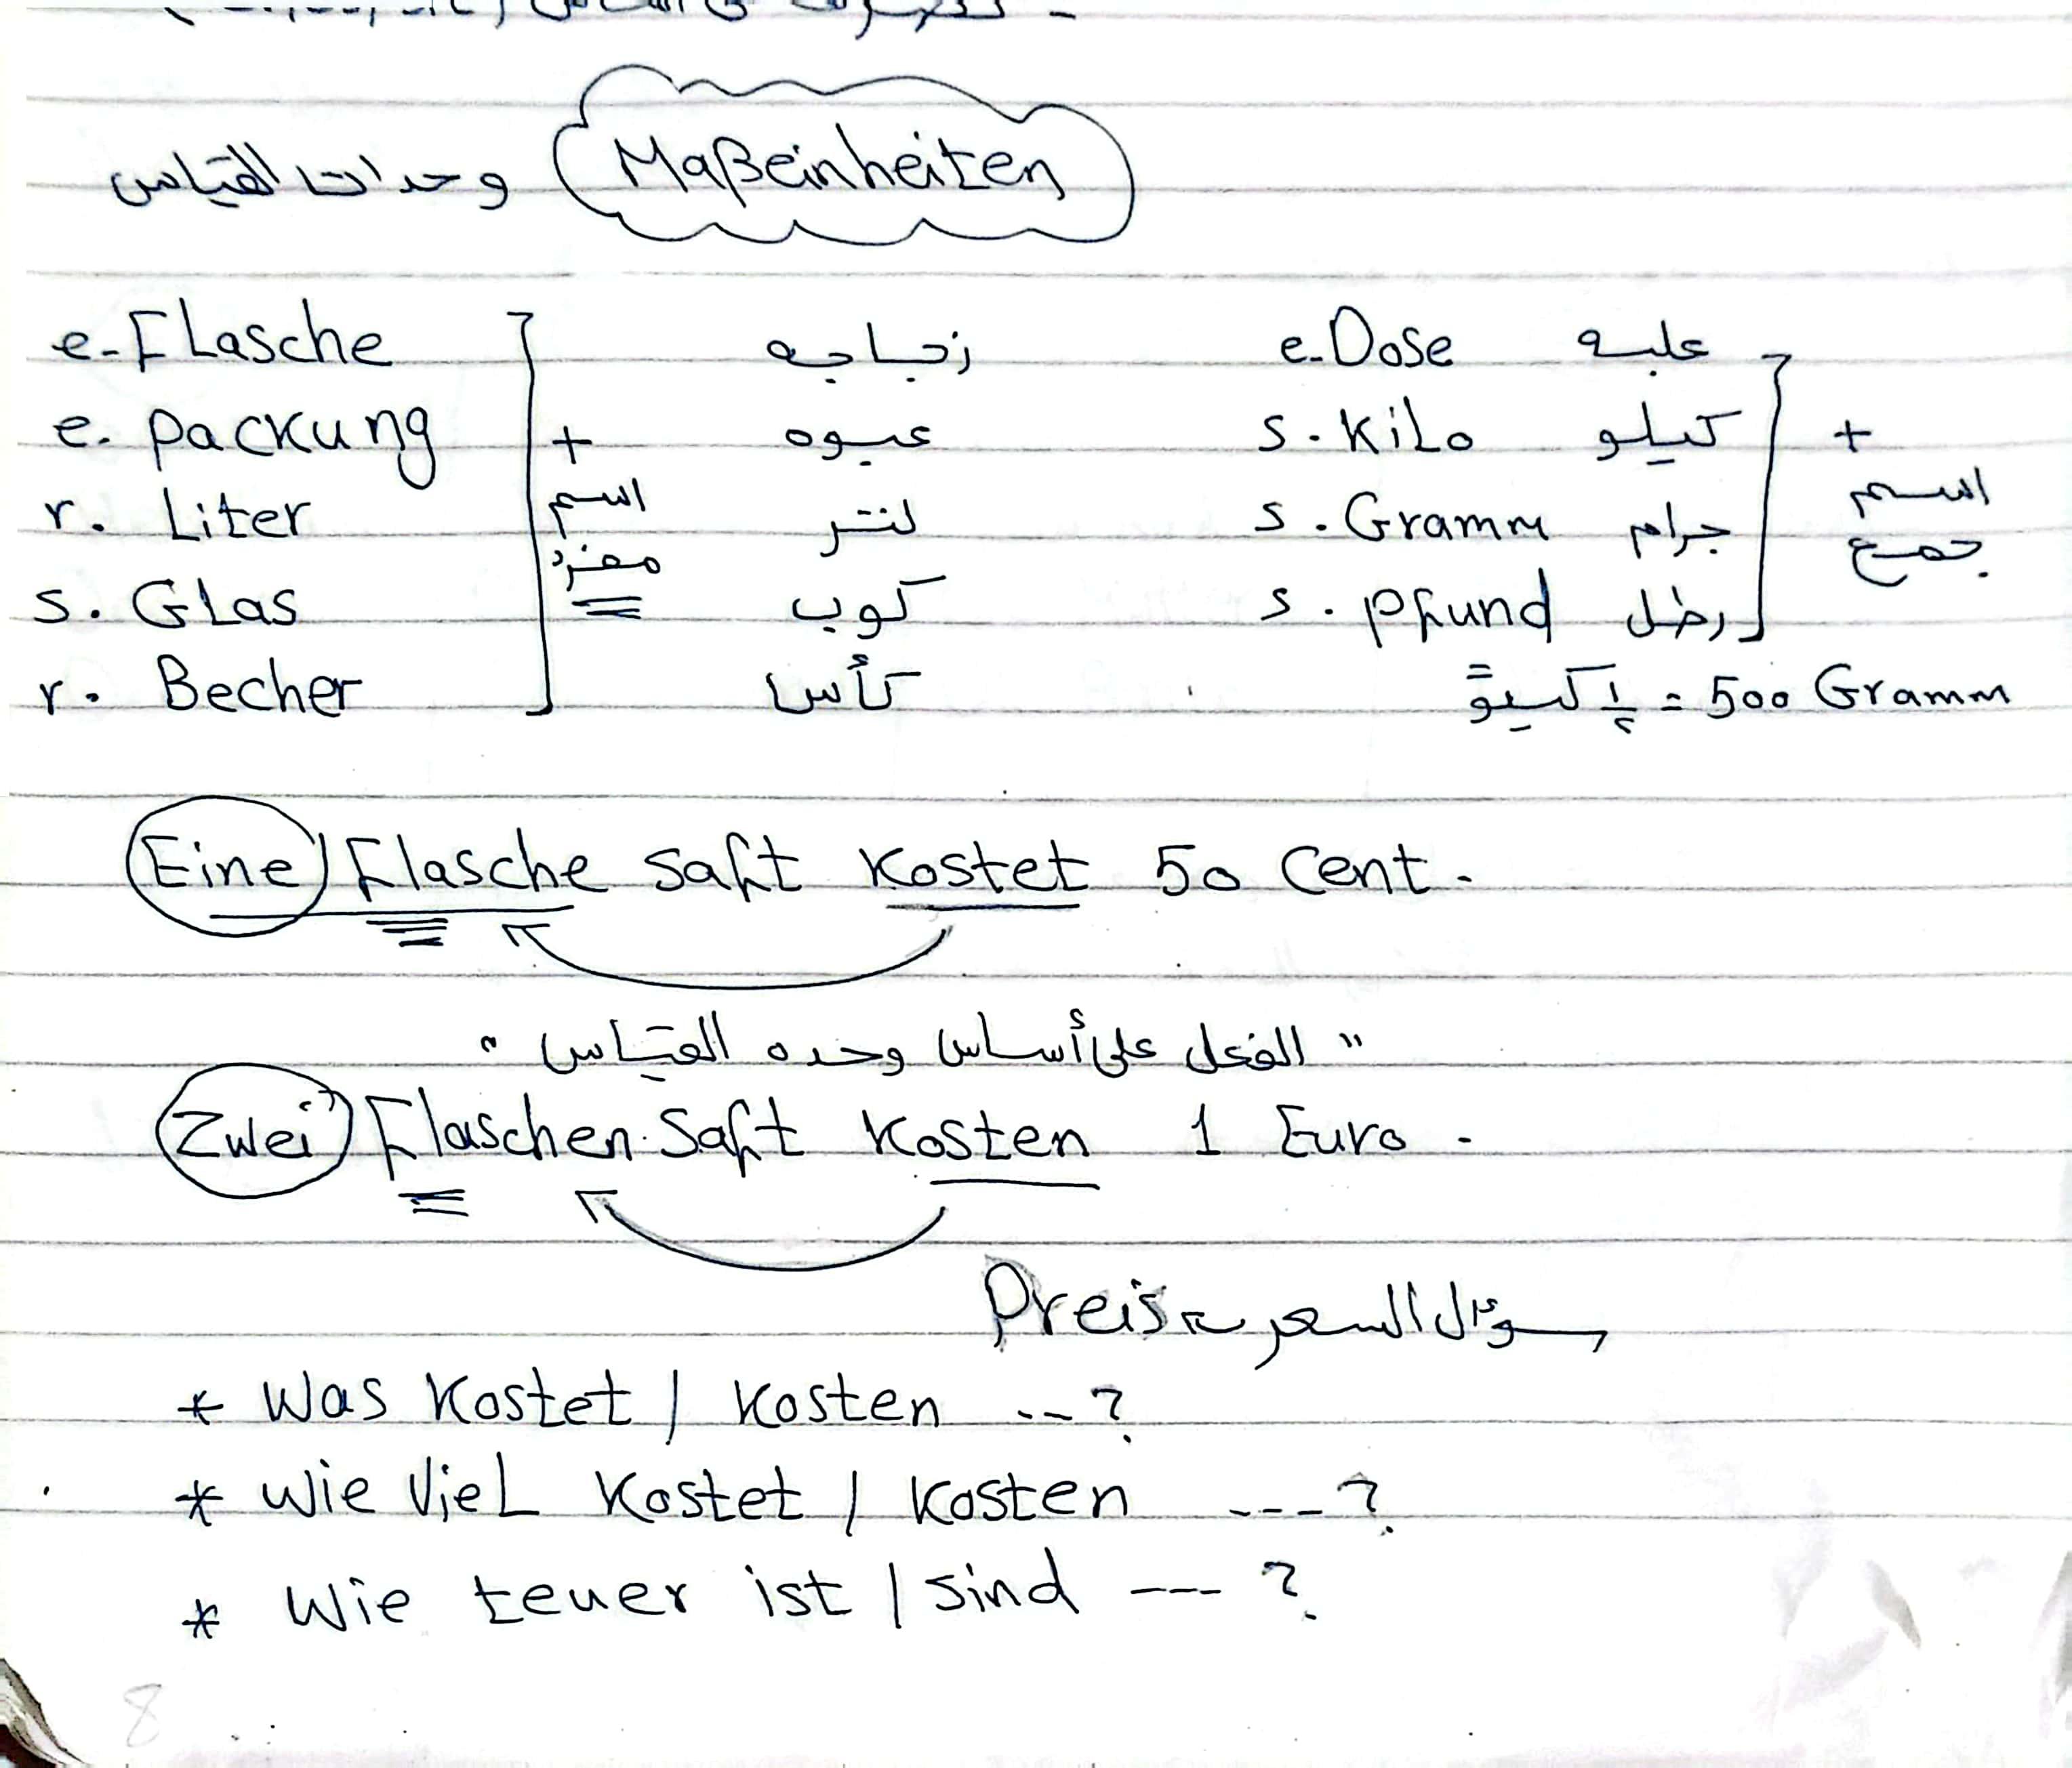 وحدات القياس Maßeinheiten
e. Flasche زجاجه e. Dose علبه
e. Packung + عبوه s. Kilo كيلو +
r. Liter اسم لتر s. Gramm جرام اسم
s. Glas مفرد كوب s. Pfund رطل جمع
r. Becher كأس 500 Gramm =
Eine Flasche Saft kostet 50 Cent.
" الفعل على أساس وحده القياس "
Zwei Flaschen Saft kosten 1 Euro.
سؤال السعر Preis
* Was kostet / kosten --?
* Wie viel kostet / kosten ---?
* Wie teuer ist / sind ---?
8